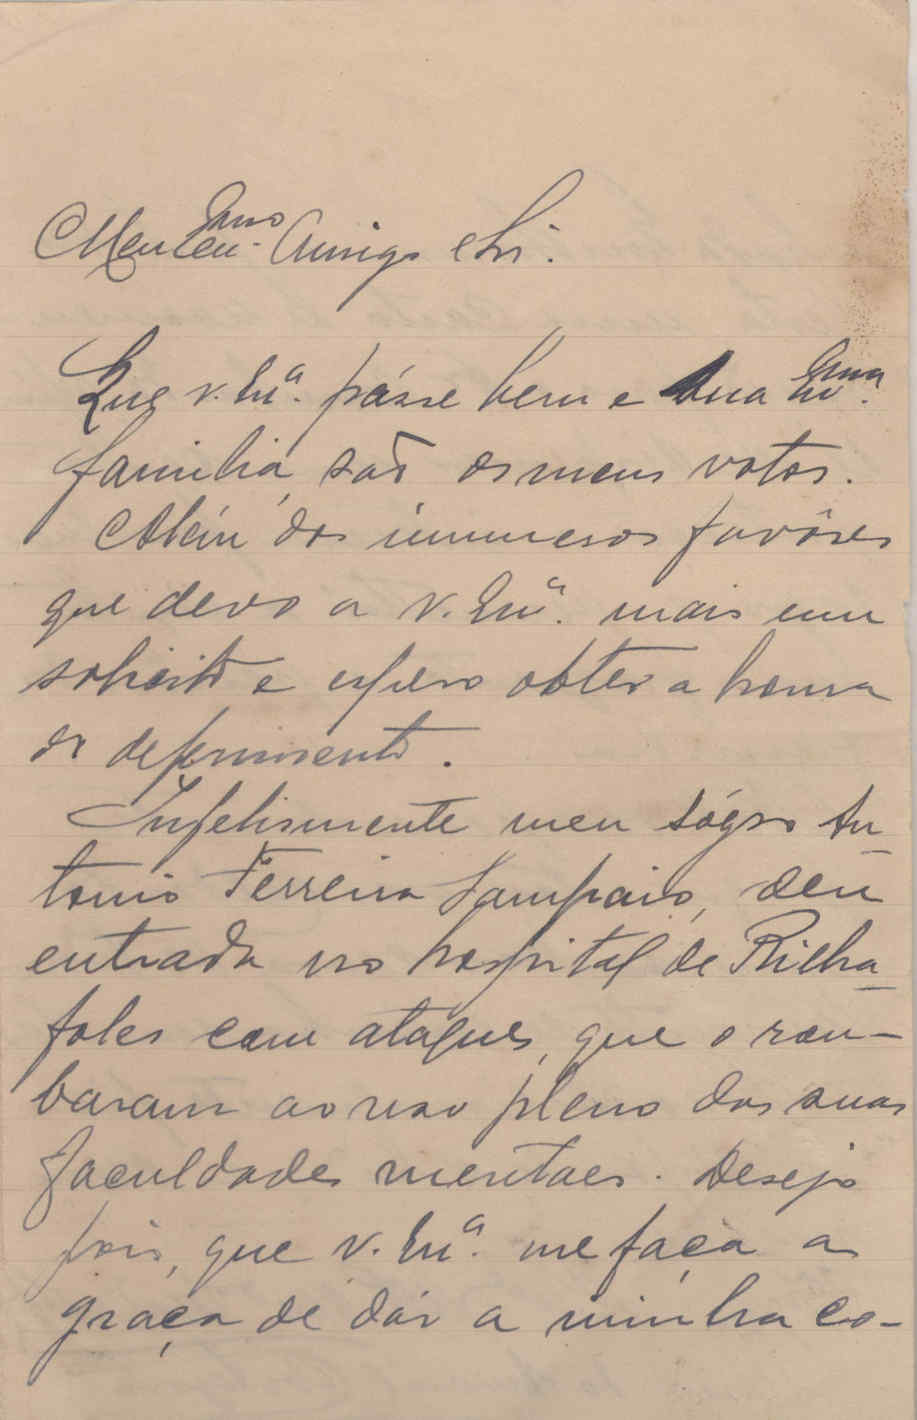 Meu Exmo. Amigo e Sr.
Que v. Exª. pásse bem e sua Exma.
familia, são os meus votos.
Além dos inumeros favôres
que devo a v. Exª. mais um
solicito e espero obter a honra
de deferimento.
Infelismente meu sógro An-
tonio Ferreira Sampaio, deu
entrada no hospital de Rilha-
foles com ataques, que o rou-
baram ao uso pleno das suas
faculdades mentaes. Desejo
pois, que v. Exª. me faça a
graça de dár a minha co-